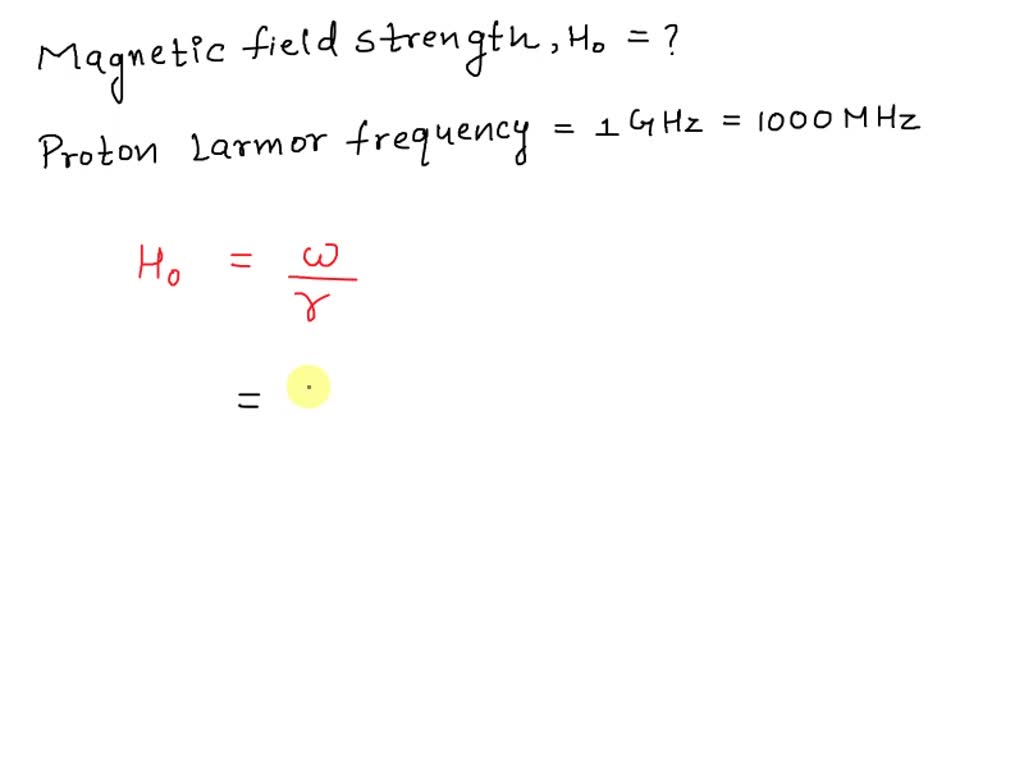 Magnetic field strength, H₀ = ?
Proton Larmor frequency = 1 GHz = 1000 MHz
H₀ = ω/γ
=